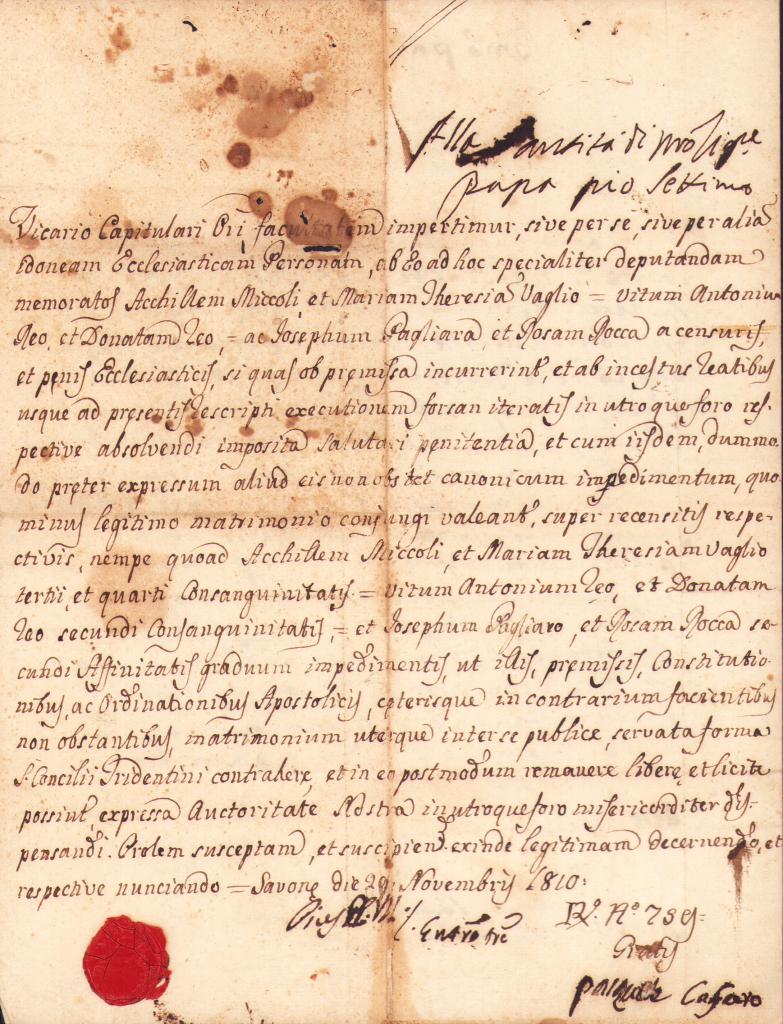 Alla Santità di
papa pio Settimo
Vicario Capitulari Orī facultatem impertimur, sive per se, sive per aliā
idoneam Ecclesiasticam Personam, ab Eo ad hoc specialiter deputandam
memoratos Acchillem Miccoli, et Mariam Theresiā Vaglio = vitum Antonium
Leo, et Donatam Leo, = ac Josephum Pagliara, et Rosam Rocca a censuris,
et penis Ecclesiasticis, si quas ob premissa incurrerint, et ab incestus Reatibus
usque ad presentis Rescripti executionem forsan iteratis in utroque foro res-
pective absolvendi imposita salutari penitentia, et cum iisdem, dummo-
do preter expressum aliud eis non obstet canonicum impedimentum, quo
minus legitimo matrimonio conjungi valeant, super recensitis respe-
ctivis, nempe quoad Acchillem Miccoli, et Mariam Theresiam vaglio
tertii, et quarti Consanguinitatis = vitum Antonium Leo, et Donatam
Leo secundi Consanguinitatis, = et Josephum Pagliaro, et Rosam Rocca se-
cundi Affinitatis graduum impedimentis, ut illis, premissis, Constitutio-
nibus, ac Ordinationibus Apostolicis, ceterisque in contrarium facientibus
non obstantibus, matrimonium uterque inter se publice, servata forma
S. Concilii Tridentini contrahere, et in eo postmodum remanere libere, et licite
possint, expressa Auctoritate Nostra in utroque foro misericorditer dis-
pensandi. Prolem susceptam, et suscipien. exinde legitimam decernendo, et
respective nunciando = Savone die 29 Novembris 1810:
Pius P. VII
R. N° 739=
Gratis
pasquale Cafaro